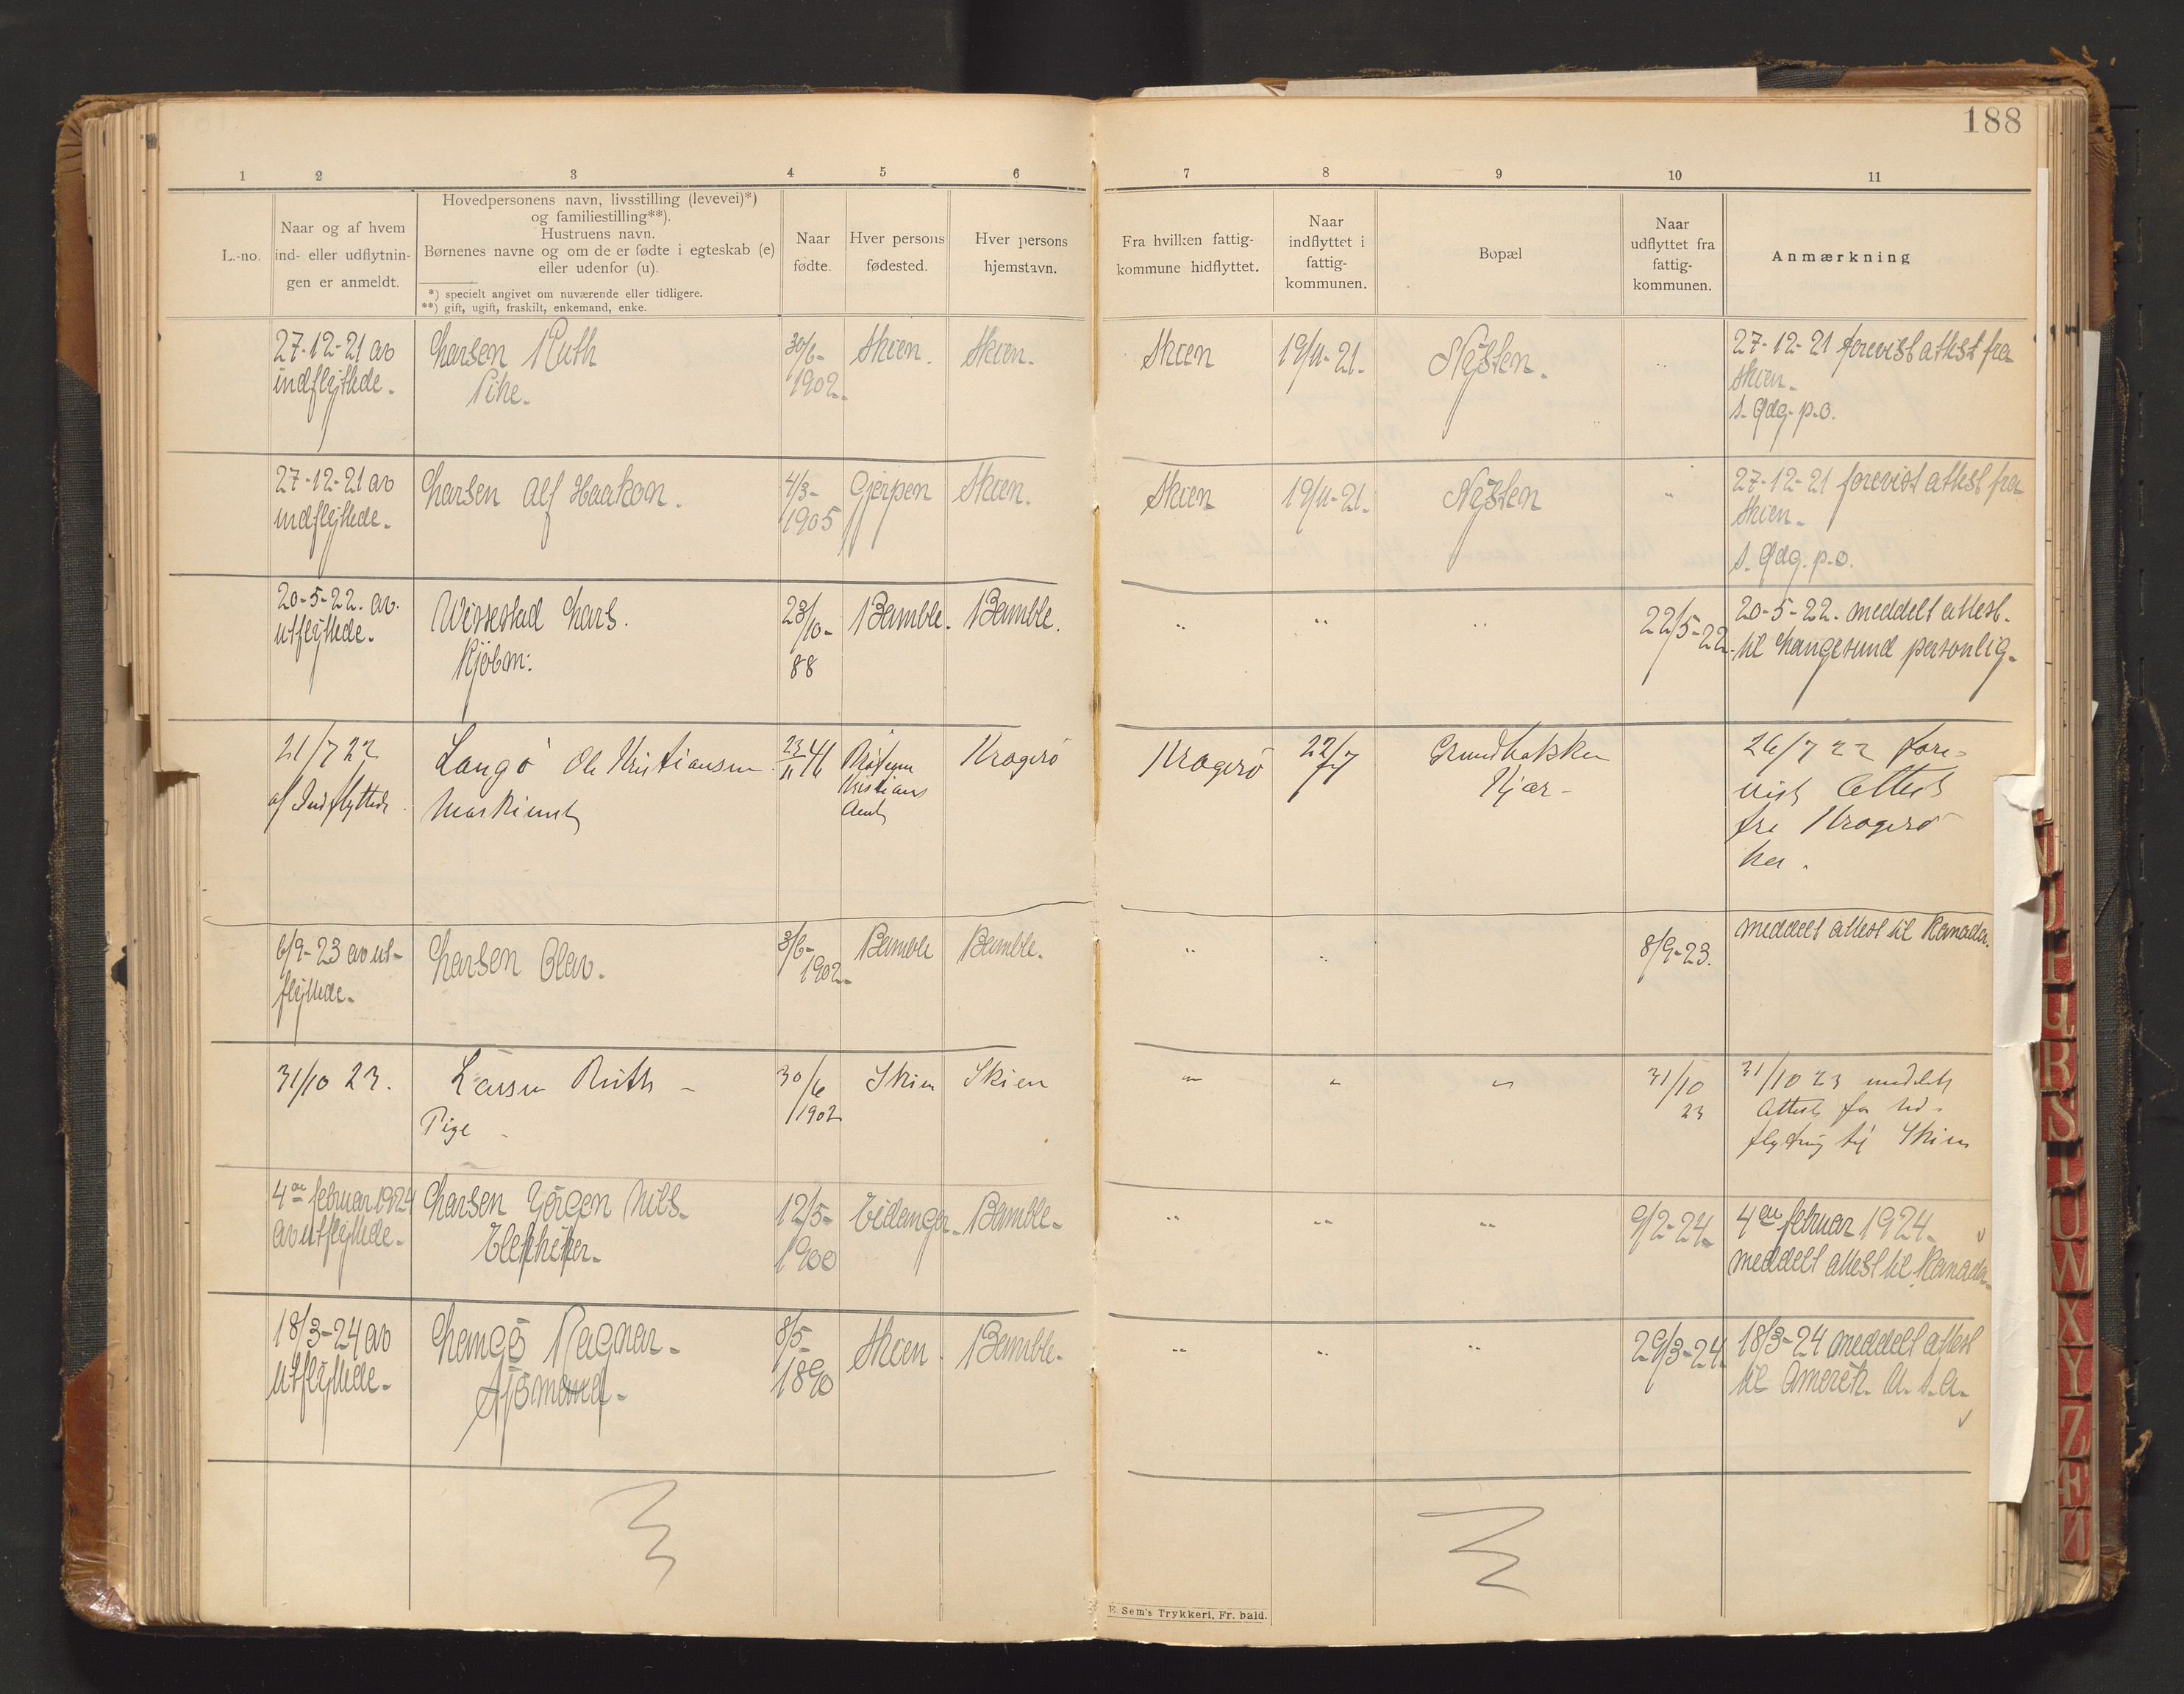 188
1 2 3 4 5 6 7 8 9 10 11
L.-no.
Naar og af hvem
ind- eller udflytnin-
gen er anmeldt.
Hovedpersonens navn, livsstilling (levevei)*)
og familiestilling**).
Hustruens navn.
Børnenes navne og om de er fødte i egteskab (e)
eller udenfor (u).
*) specielt angivet om nuværende eller tidligere.
**) gift, ugift, fraskilt, enkemand, enke.
Naar
fødte.
Hver persons
fødested.
Hver persons
hjemstavn.
Fra hvilken fattig-
kommune hidflyttet.
Naar
indflyttet i
fattig-
kommunen.
Bopæl
Naar
udflyttet fra
fattig-
kommunen.
Anmærkning
27-12-21 av
indflyttede.
Larsen Ruth
Pike.
30/6-
1902.
Skien.
Skien.
Skien
19/11-21.
Nysten.
"
27-12-21 forevist attest fra
Skien.
s. Qdg. p.o.
27-12-21 av
indflyttede.
Larsen Alf Haakon.
4/3-
1905
Gjerpen
Skien.
Skien
19/11-21.
Nysten
"
27-12-21 forevist attest fra
Skien.
s. Qdg. p.o.
20-5-22. av.
utflyttede.
Wissestad Lars.
Kjøbm:
23/10-
88
Bamble.
Bamble.
"
"
"
22/5-22.
20-5-22. meddelt attest.
til Langesund personlig.
21/7 22
af Indflyttede.
Langö Ole Kristiansen
Maskinist
23/11 46
Kristians
Amt
Kragerö
Kragerö
22/7
Kjær-
26/7 22 fore-
vist Attest
fra Kragerö
her.
6/9-23 av ut-
flyttede.
Larsen Olav.
3/6-
1902.
Bamble
Bamble.
"
"
8/9-23.
meddelt attest til Kanada.
31/10 23.
Larsen Ruth -
Pige -
30/6
1902
Skien
Skien
"
"
"
31/10
23
31/10 23 meddelt
Attest for Ud-
flytning til Skien
4de februar 1924
av utflyttede.
Larsen Jörgen Nils.
Elektriker.
12/5-
1900
Eidanger.
Bamble.
"
"
"
9/2-24.
4de februar 1924.
meddelt attest til Kanada.
18/3-24 av
utflyttede.
Langö Ragnar.
Sjömand.
8/5-
1890
Skien.
Bamble.
"
"
"
29/3-24.
18/3-24 meddelt attest
til Amerik. U. S. A.
E. Sem's Trykkeri, Fr. hald.
R
S
T
U
W
X
Y
Z
Æ